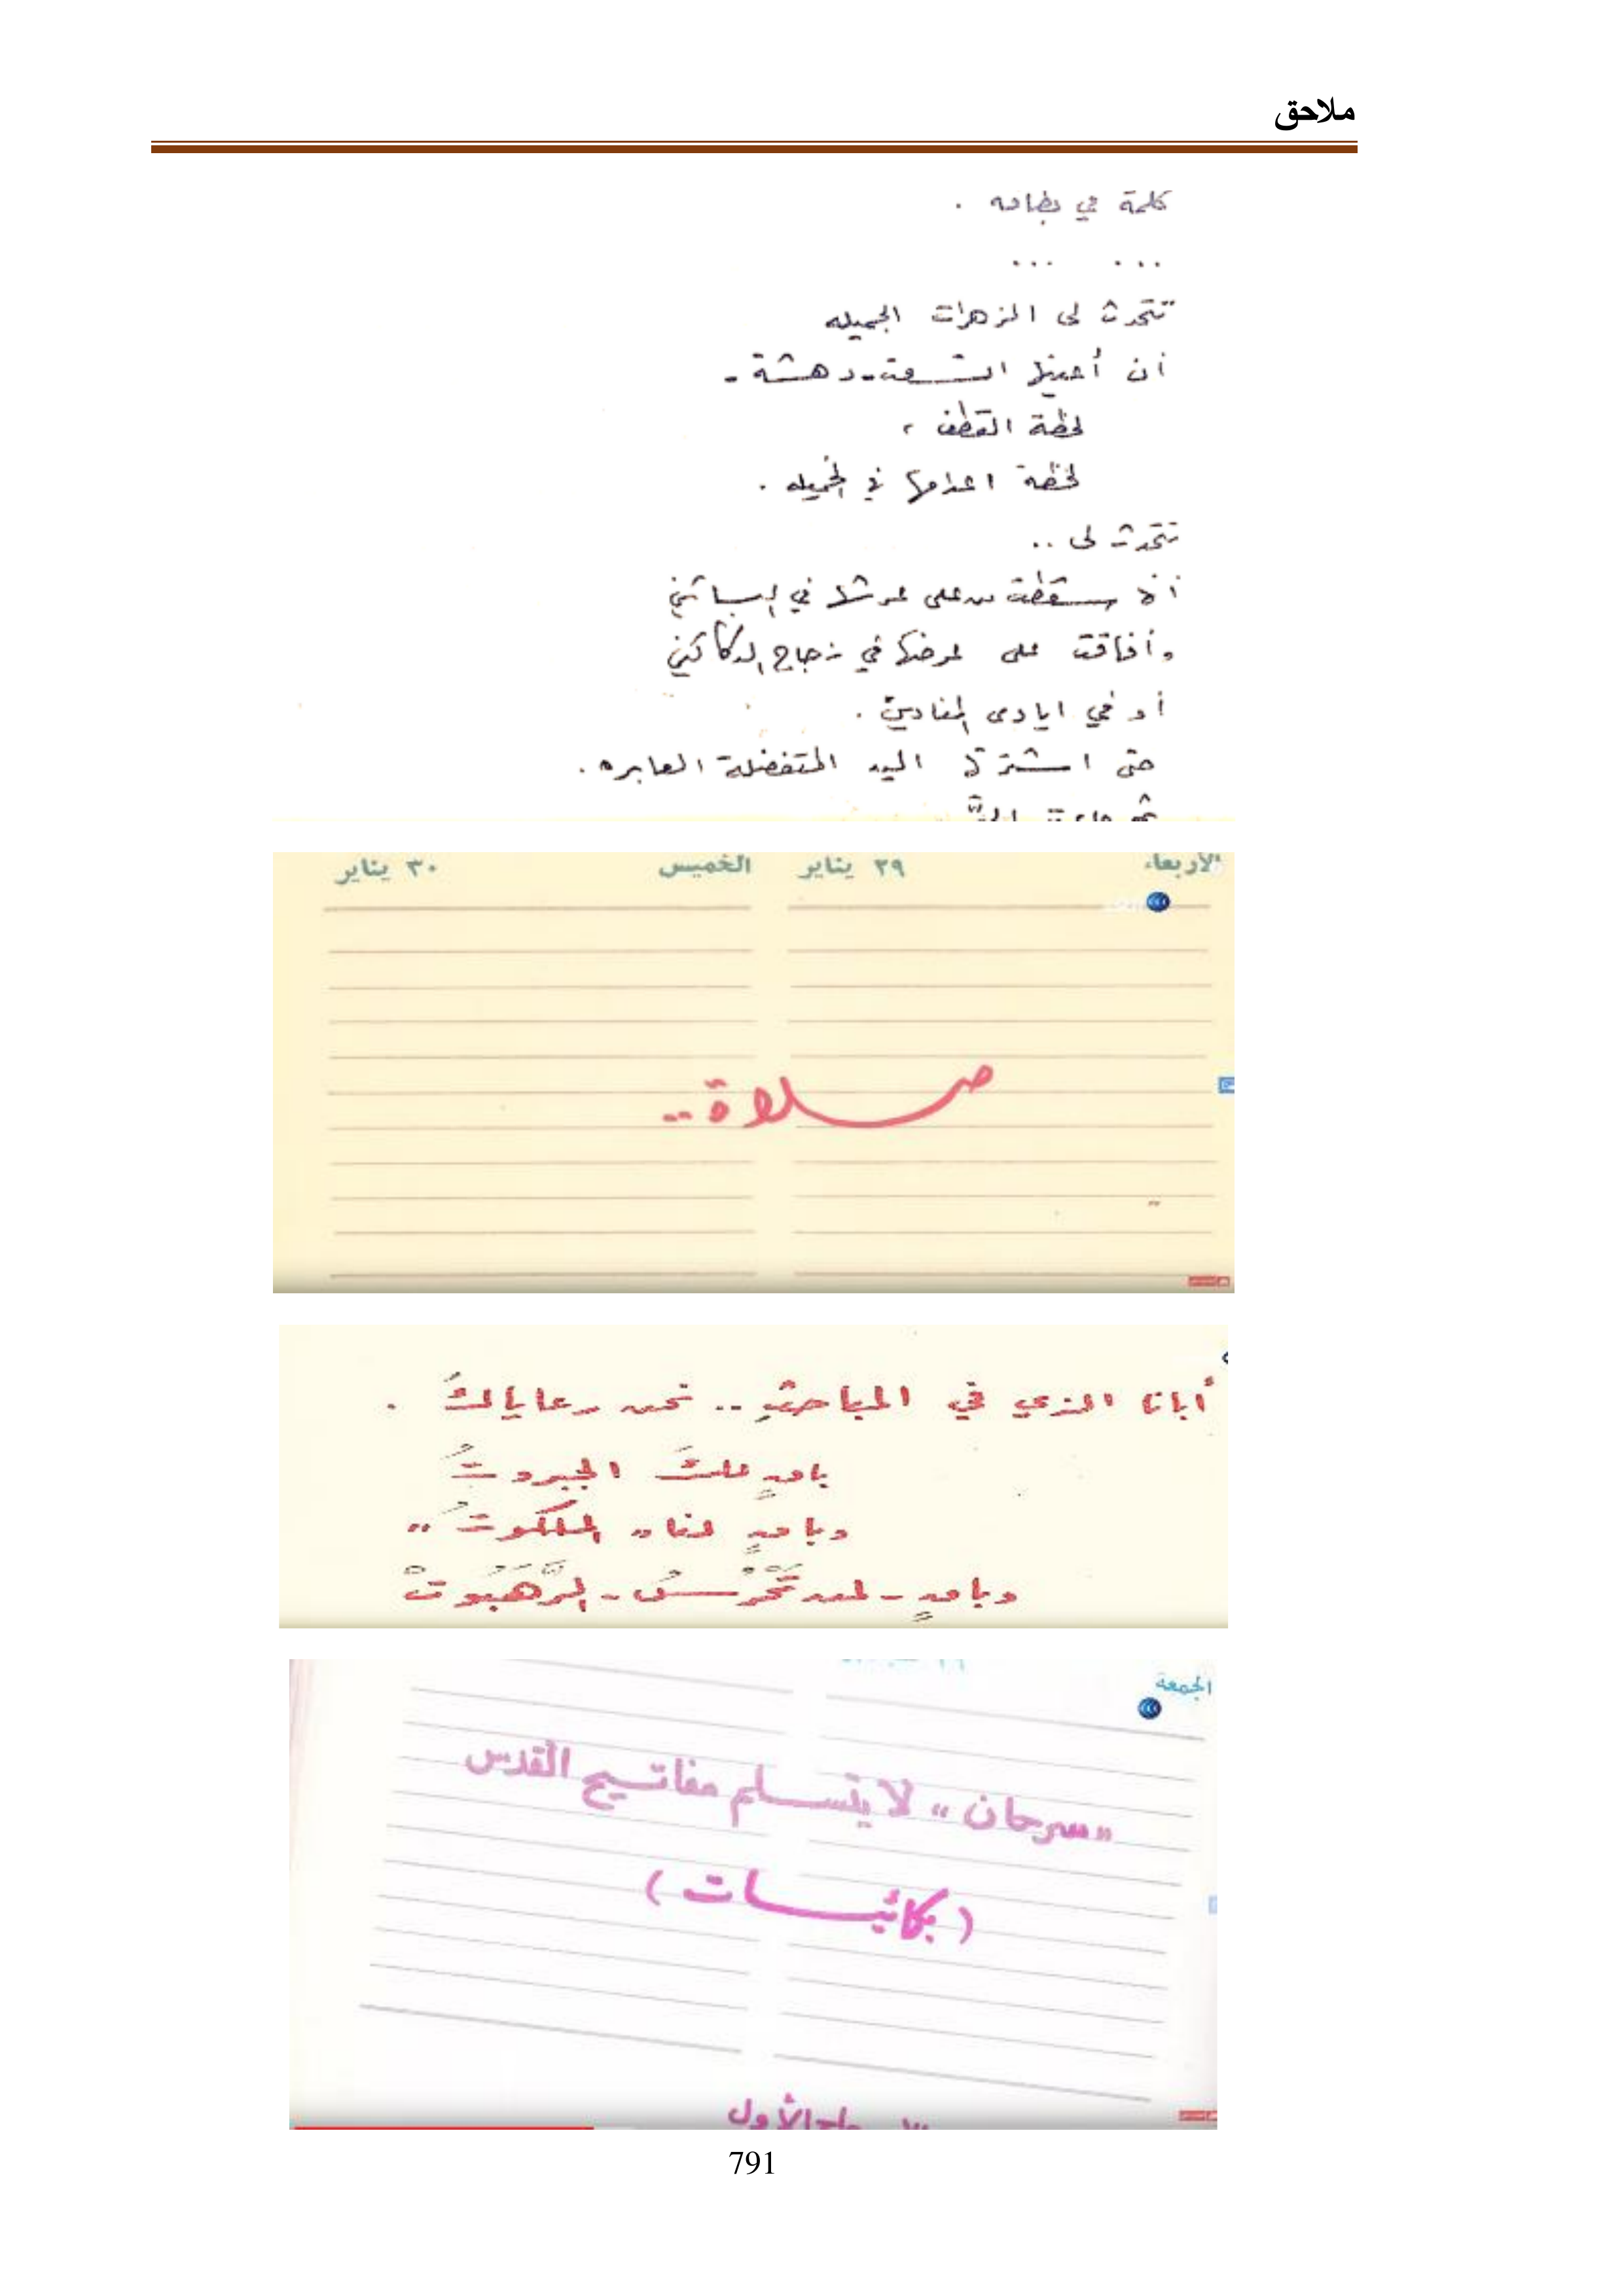 ملاحق
كلمة في بطاقه .
... ...
تتحدث لى الزهرات الجميله
أن أعينها اتسعت - دهشة -
لحظة القطف ،
لحظة اعدامها في الخميله .
تتحدث لى ..
أنها سقطت من على عرشها في البساتين
وأفاقت على عرضها في زجاج الدكاكين
أو في ايادى المنادين .
حتى اشترتها اليد المتفضلة العابره .
الأربعاء ٢٩ يناير الخميس ٣٠ يناير
صلاة ..
أبانا الذي في المباحثِ .. نحن رعاياكَ .
باقٍ لكَ الجبروتُ
وباقٍ لنا " الملكوتُ "
وباقٍ - لمن تَحْرُسُ - الرَّهَبُوتْ
الجمعة
"سرحان" لا يتسلم مفاتيح القدس
(بكائيات)
الأول
791